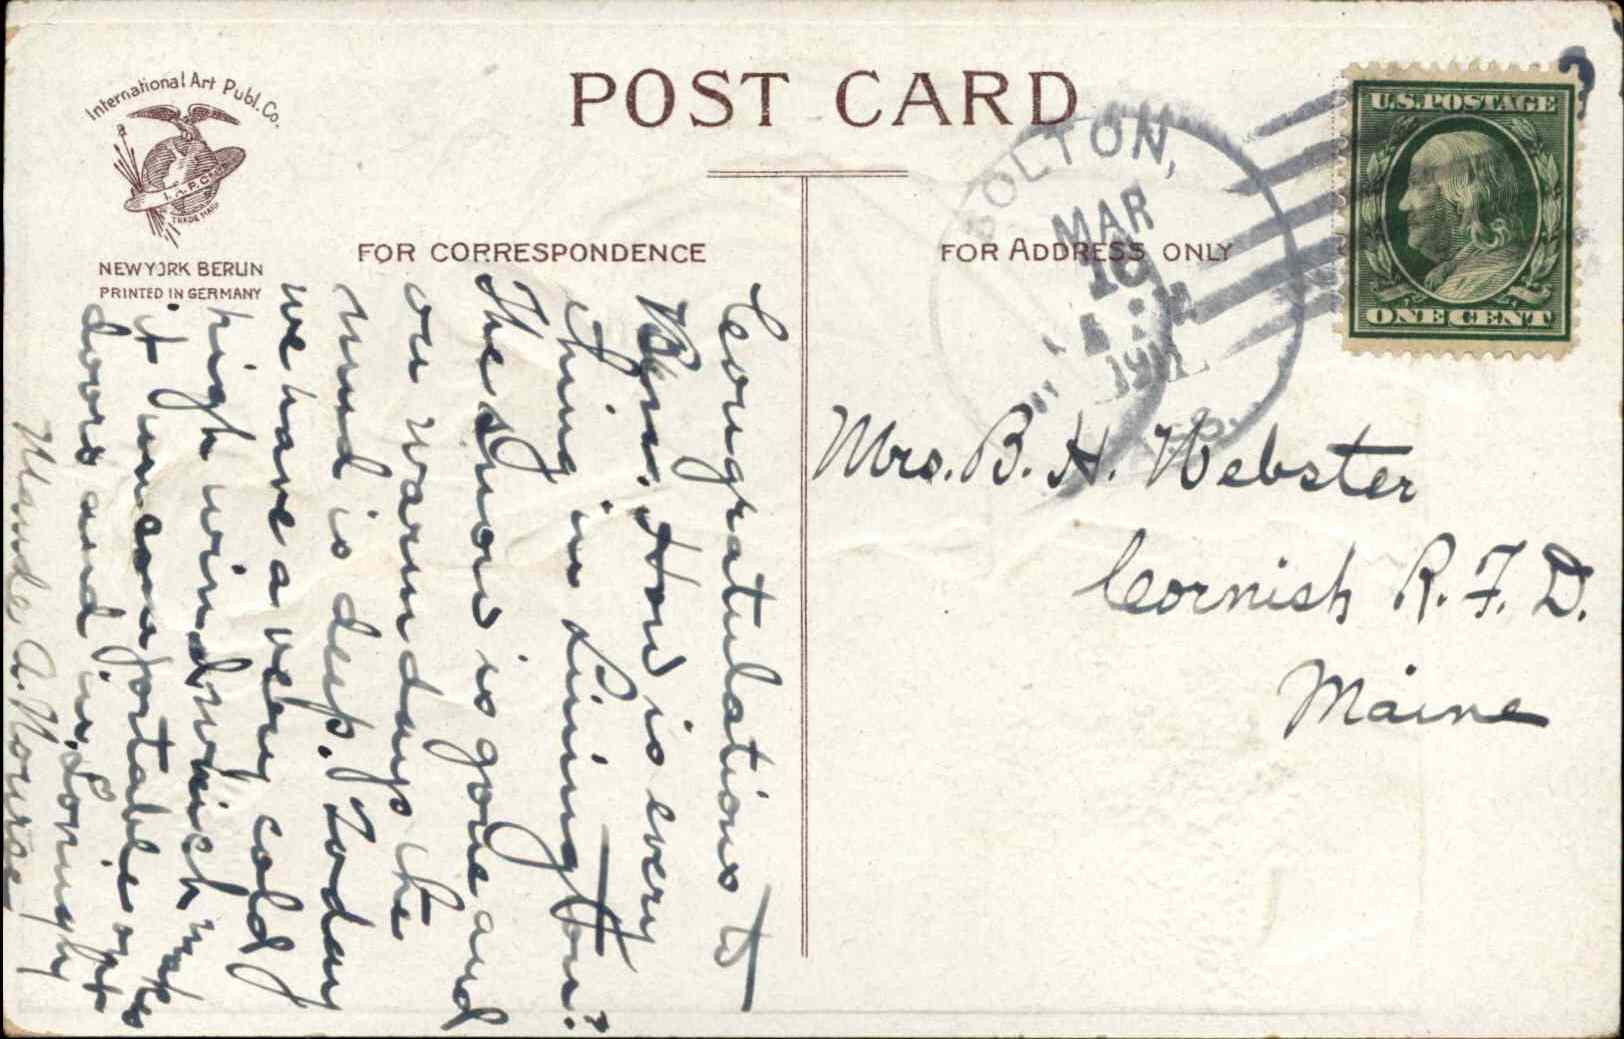 International Art Publ. Co.
I. A. P. Co.
TRADE MARK
NEW YORK BERLIN
PRINTED IN GERMANY
POST CARD
FOR CORRESPONDENCE
FOR ADDRESS ONLY
BOLTON,
MAR
16
M
1911
U.S. POSTAGE
ONE CENT
Congratulations to
How is every
thing in Limington?
The snow is gone and
on warm days the
mud is deep. Today
we have a very cold
high wind which makes
it uncomfortable out
doors and in. Lovingly
Maude A. Nourse
Mrs. B. H. Webster
Cornish R. F. D.
Maine